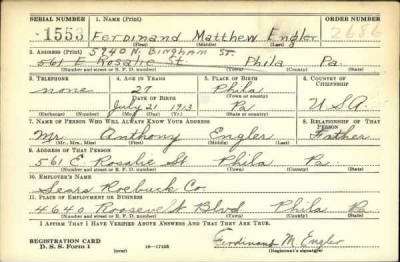 SERIAL NUMBER 1. NAME (Print) ORDER NUMBER
1553 Ferdinand Matthew Engler 2686
(First) (Middle) (Last)
5940 N. Bingham St.
2. ADDRESS (Print)
561 E. Rosalie St. Phila Pa.
(Number and street or R. F. D. number) (Town) (County) (State)
3. TELEPHONE 4. AGE IN YEARS 5. PLACE OF BIRTH 6. COUNTRY OF CITIZENSHIP
none 27 Phila
DATE OF BIRTH (Town or county)
July 21 1913 Pa U.S.A.
(Mo.) (Day) (Yr.) (State or country)
7. NAME OF PERSON WHO WILL ALWAYS KNOW YOUR ADDRESS 8. RELATIONSHIP OF THAT PERSON
Mr. Anthony Engler Father
(Mr., Mrs., Miss) (First) (Middle) (Last)
9. ADDRESS OF THAT PERSON
561 E. Rosalie St Phila Pa.
(Number and street or R. F. D. number) (Town) (County) (State)
10. EMPLOYER'S NAME
Sears Roebuck Co
11. PLACE OF EMPLOYMENT OR BUSINESS
4640 Roosevelt Blvd Phila Pa
(Number and street or R. F. D. number) (Town) (County) (State)
I AFFIRM THAT I HAVE VERIFIED ABOVE ANSWERS AND THAT THEY ARE TRUE.
REGISTRATION CARD
D. S. S. Form 1 (over) 16-17105 Ferdinand M. Engler
(Registrant's signature)